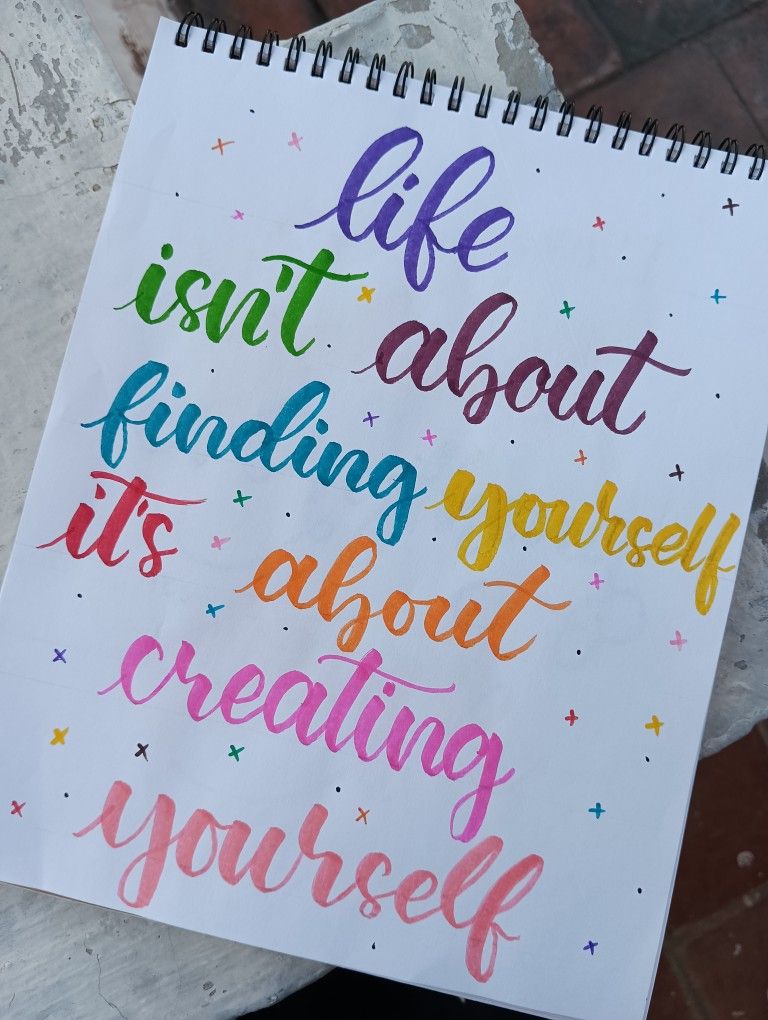 life
isn't about
finding yourself
it's about
creating
yourself